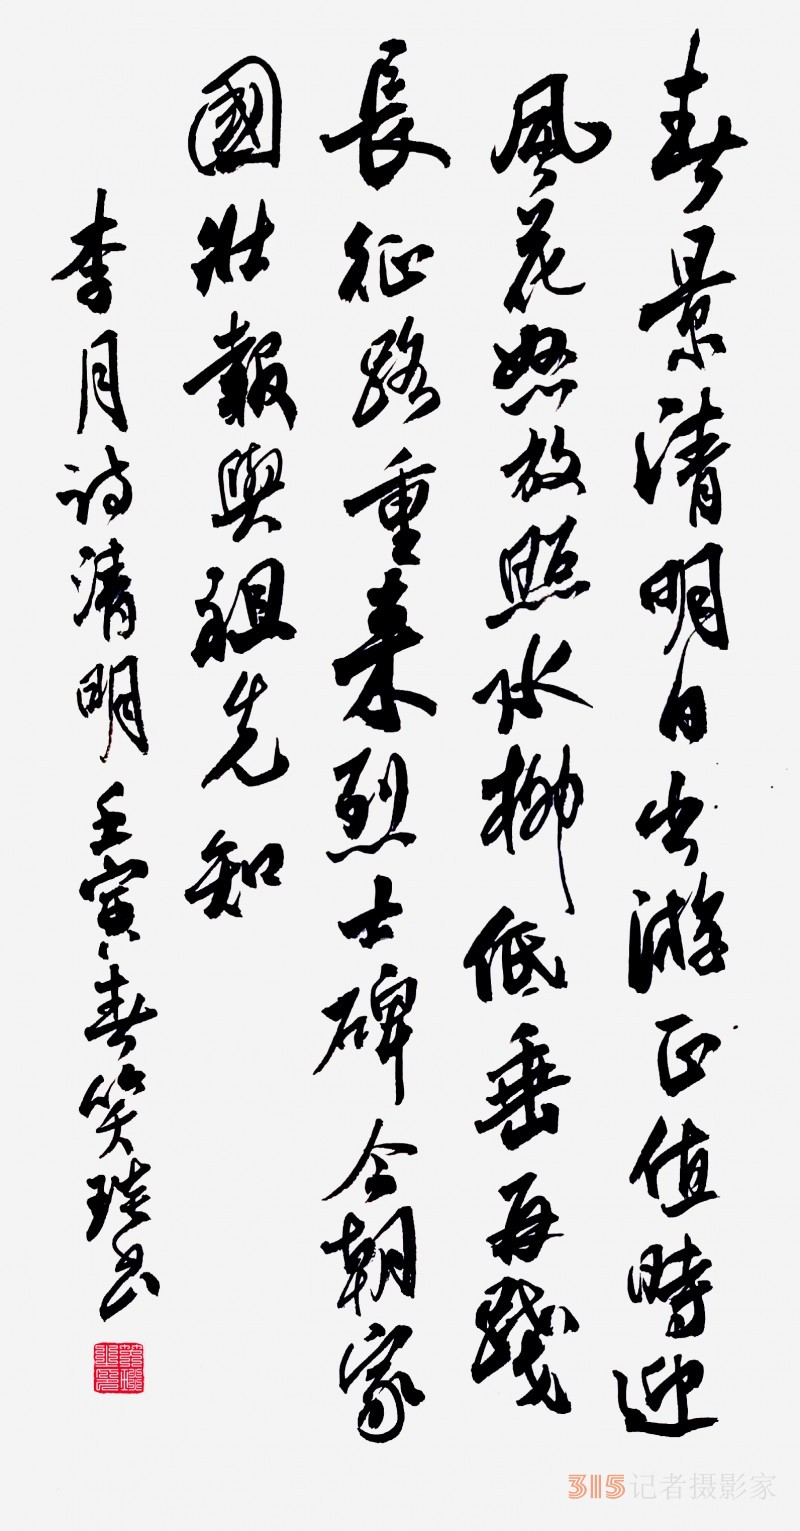 春景清明日出游正值時迎
風花怒放照水柳低垂再踐
長征路重来烈士碑今朝家
國壯報與祖先知
李月诗清明壬寅春笑琰书
315记者摄影家